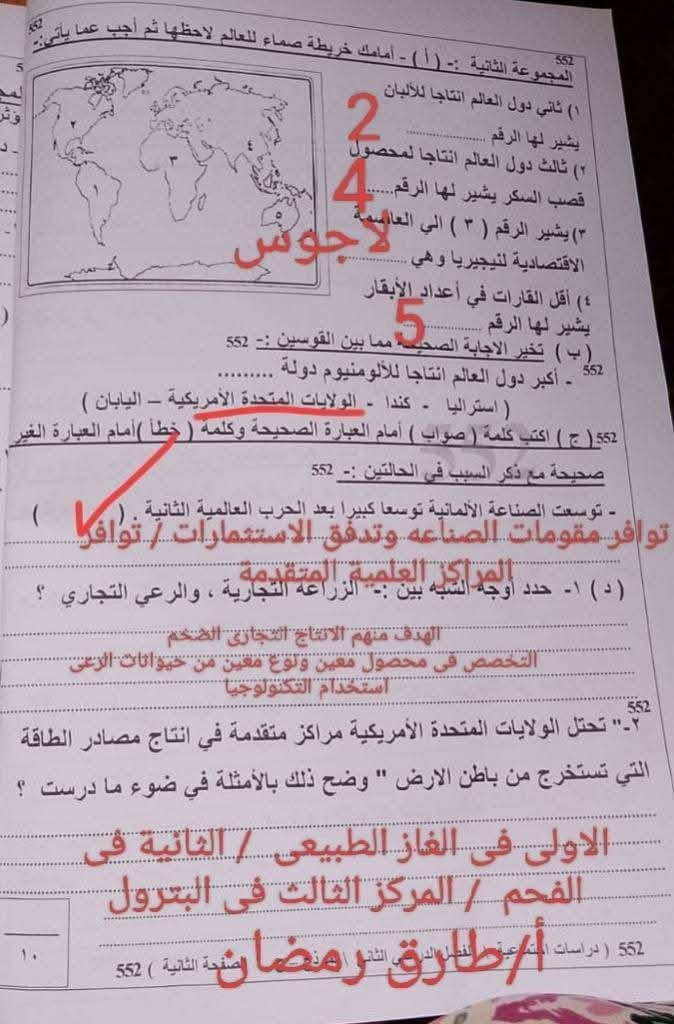 552
552
المجموعة الثانية :- ( أ ) - أمامك خريطة صماء للعالم لاحظها ثم أجب عما يأتي:-
١) ثاني دول العالم انتاجا للألبان
يشير لها الرقم ................
2
٢) ثالث دول العالم انتاجا لمحصول
قصب السكر يشير لها الرقم......
4
٣) يشير الرقم ( ٣ ) الي العاصمة
الاقتصادية لنيجيريا وهي ................
لاجوس
٤) أقل القارات في أعداد الأبقار
يشير لها الرقم ................
5
١
٢
٣
٤
٥
( ب ) تخير الاجابة الصحيحة مما بين القوسين :- 552
552 - أكبر دول العالم انتاجا للألومنيوم دولة .........
( استراليا - كندا - الولايات المتحدة الأمريكية – اليابان )
552( ج ) اكتب كلمة ( صواب ) أمام العبارة الصحيحة وكلمة ( خطأ )أمام العبارة الغير
صحيحة مع ذكر السبب في الحالتين :- 552
- توسعت الصناعة الألمانية توسعا كبيرا بعد الحرب العالمية الثانية . ( )
توافر مقومات الصناعه وتدفق الاستثمارات / توافر
المراكز العلمية المتقدمة
( د ) ١- حدد أوجه الشبه بين :- الزراعة التجارية ، والرعي التجاري ؟
الهدف منهم الانتاج التجارى الضخم
التخصص فى محصول معين ونوع معين من حيوانات الرعى
استخدام التكنولوجيا
552
٢-" تحتل الولايات المتحدة الأمريكية مراكز متقدمة في انتاج مصادر الطاقة
التي تستخرج من باطن الارض " وضح ذلك بالأمثلة في ضوء ما درست ؟
الاولى فى الغاز الطبيعى / الثانية فى
الفحم / المركز الثالث فى البترول
أ/طارق رمضان
١٠
552 ( دراسات اجتماعية الفصل الدراسي الثاني الصفحة الثانية ) 552